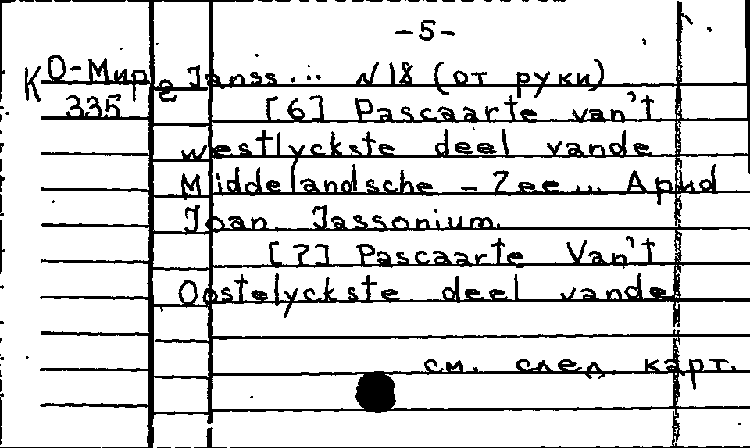 -5-
К О-Мир е Janss... N 18 (от руки)
335 [6] Pascaarte van't
westlyckste deel vande
Middelandsche - Zee... Apud
Joan Jassonium.
[7] Pascaarte Van't
Oostelyckste deel vande
см. след. карт.